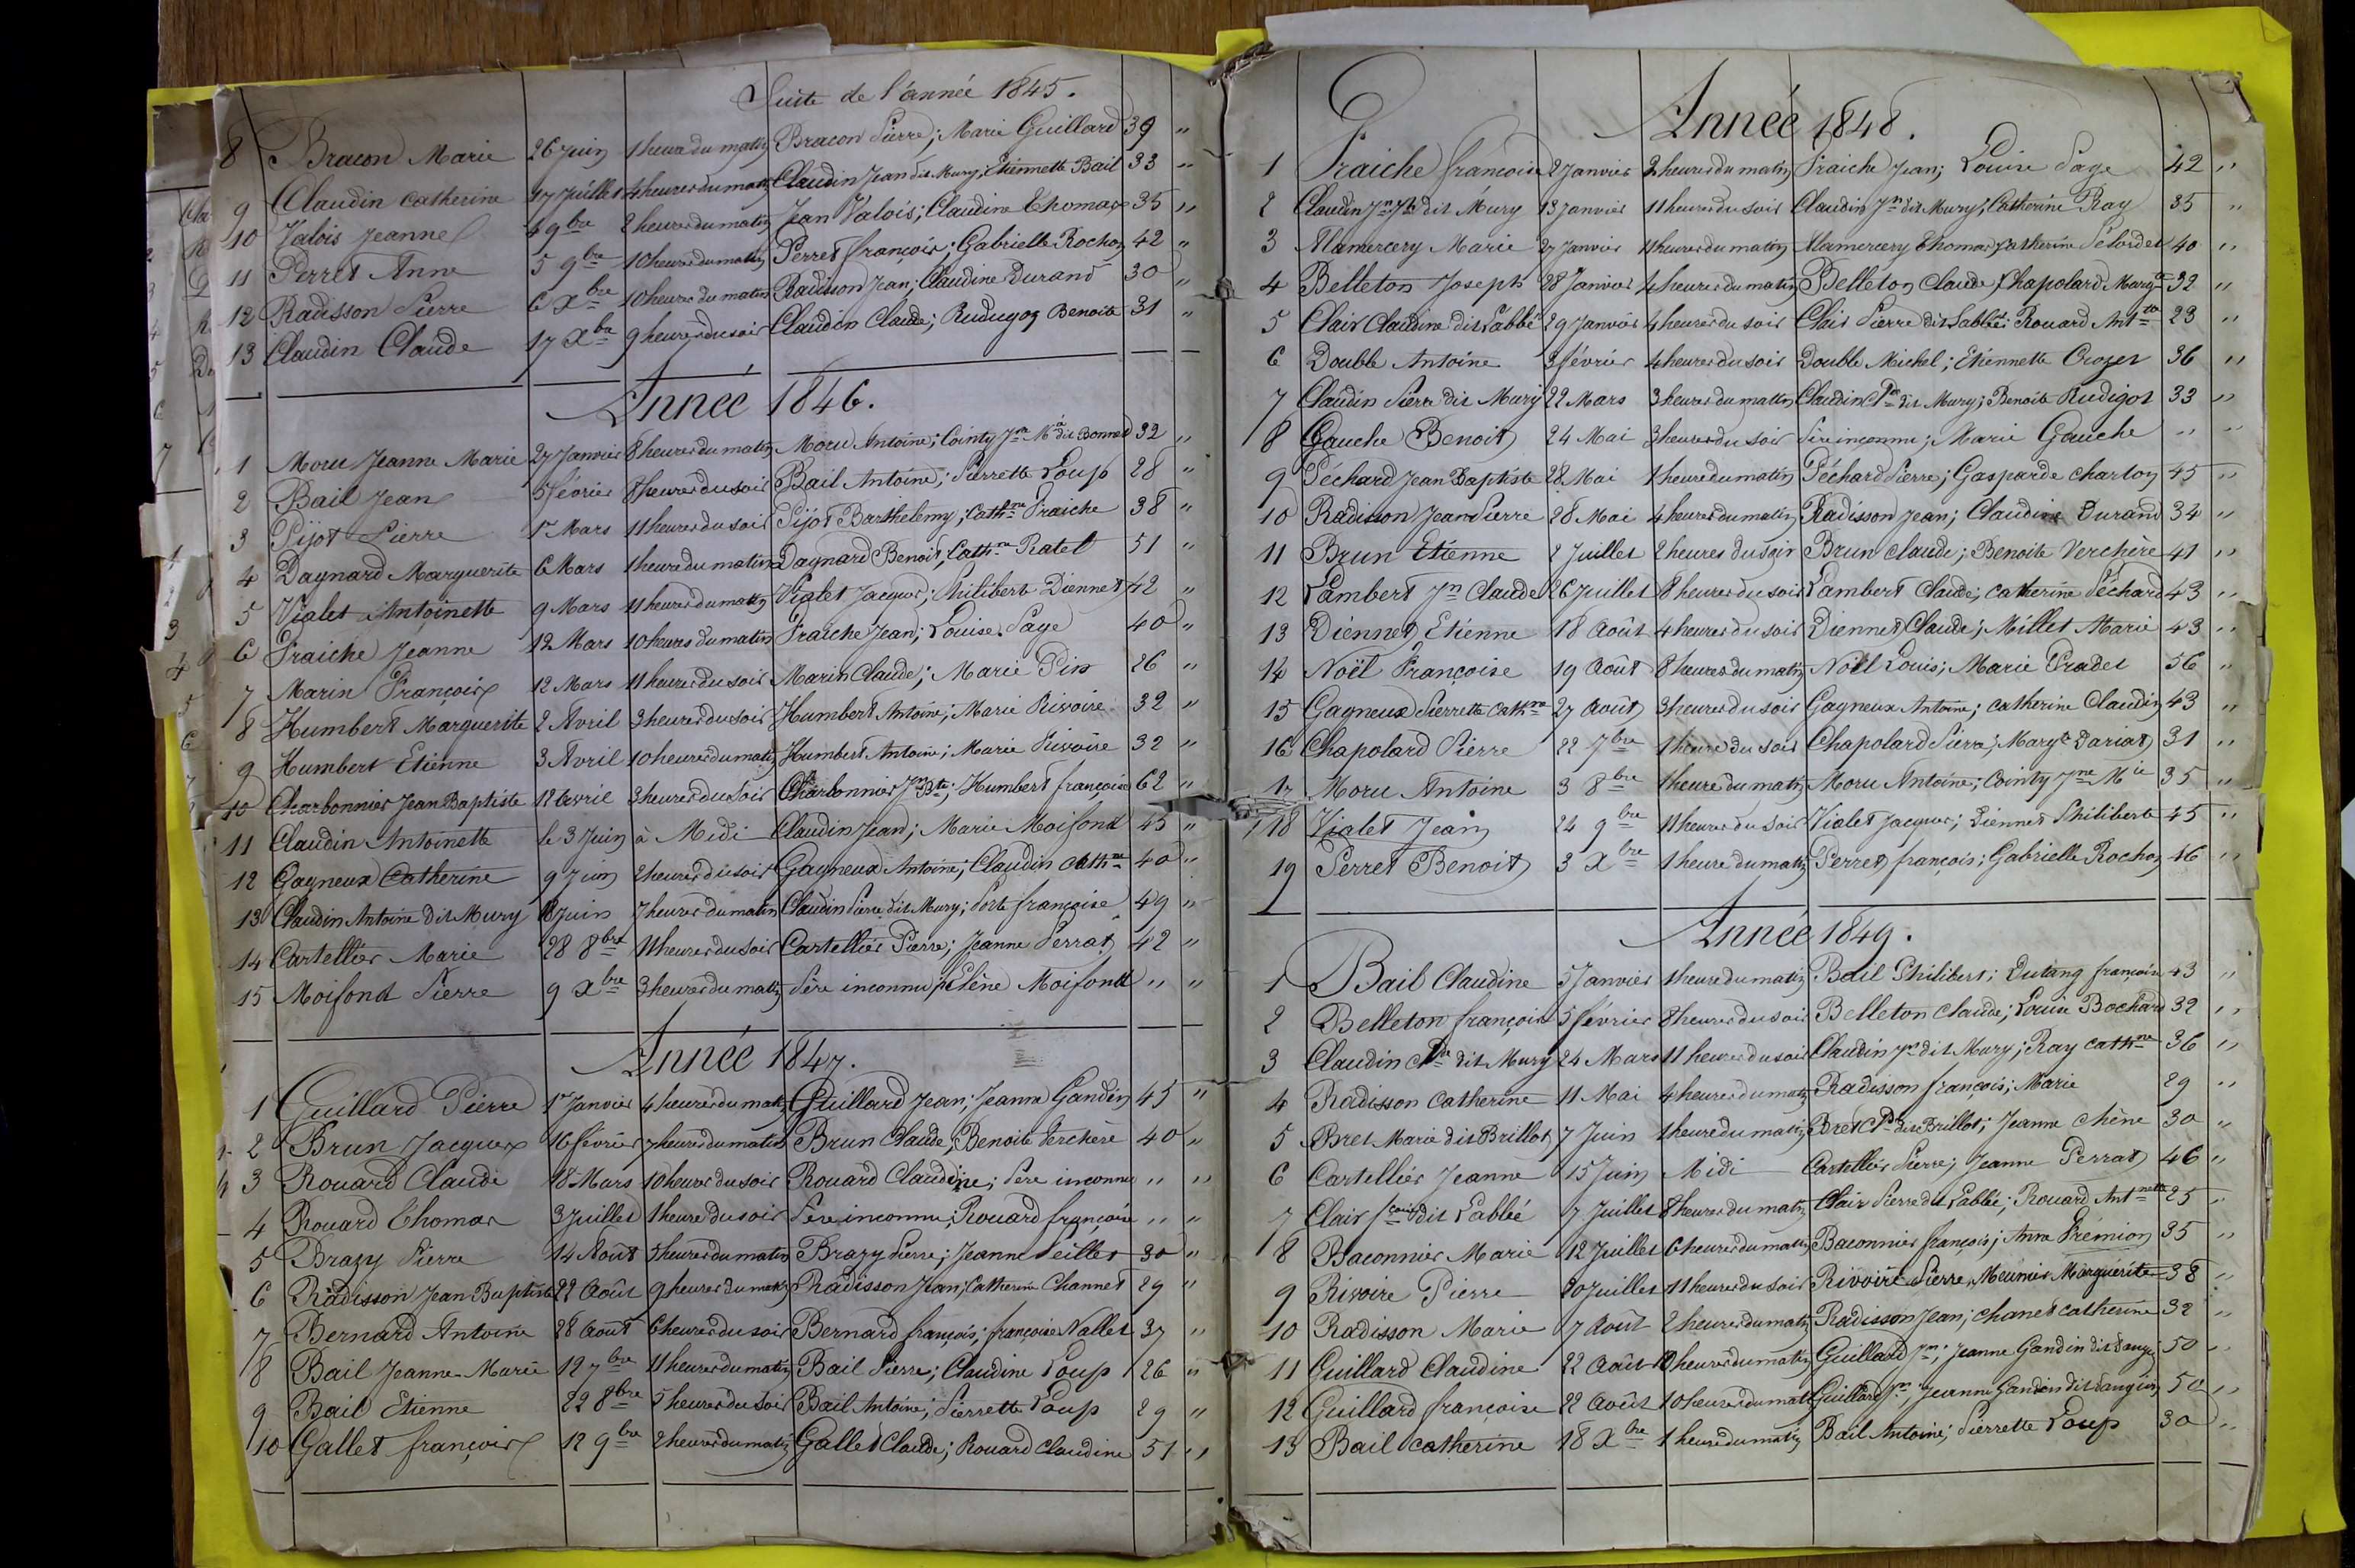 Suite de l'année 1845.
8 Bracon Marie 26 Juin 1 heure du matin Bracon Pierre; Marie Guillard 39 "
9 Claudin Catherine 17 Juillet 4 heures du matin Claudin Jean dit Mury; Etiennette Bail 33 "
10 Valois Jeanne 4 9bre 2 heures du matin Jean Valois; Claudine Thomas 35 "
11 Perret Anne 5 9bre 10 heures du matin Perret françois; Gabrielle Rochon 42 "
12 Radisson Pierre 6 Xbre 10 heures du matin Radisson Jean; Claudine Durand 30 "
13 Claudin Claude 17 Xbre 9 heures du soir Claudin Claude; Benoite 31 "
Année 1846.
1 Moru Jeanne Marie 27 Janvier 8 heures du matin Moru Antoine; Cointy Jne Mie dit Bonnet 32 "
2 Bail Jean 5 février 8 heures du soir Bail Antoine; Pierrette Loup 28 "
3 Pijot Pierre 1r Mars 11 heures du soir Pijot Barthélemy; Cathne Fraiche 38 "
4 Daynard Marguerite 6 Mars 1 heure du matin Daynard Benoit; Cathne Ratel 51 "
5 Vialet Antoinette 9 Mars 11 heures du matin Vialet Jacques; Philiberte Diennet 42 "
6 Fraiche Jeanne 12 Mars 10 heures du matin Fraiche Jean; Louise Page 40 "
7 Marin François 12 Mars 11 heures du soir Marin Claude; Marie Pin 26 "
8 Humbert Marguerite 2 Avril 3 heures du soir Humbert Antoine; Marie Rivoire 32 "
9 Humbert Etienne 3 Avril 10 heures du matin Humbert Antoine; Marie Rivoire 32 "
10 Charbonnier Jean Baptiste 12 Avril 3 heures du soir Charbonnier Jn Bte; Humbert françoise 62 "
11 Claudin Antoinette le 3 Juin à Midi Claudin Jean; Marie Moifond 45 "
12 Gagneux Catherine 9 Juin 2 heures du soir Gagneux Antoine; Claudin Cathne 40 "
13 Claudin Antoine dit Mury 18 Juin 7 heures du matin Claudin Pierre dit Mury; Porte françoise 49 "
14 Cartellier Marie 28 8bre 11 heures du soir Cartellier Pierre; Jeanne Perrat 42 "
15 Moifond Pierre 9 Xbre 3 heures du matin Père inconnu; Elène Moifond " "
Année 1847.
1 Guillard Pierre 1r Janvier 4 heures du matin Guillard Jean; Jeanne Gandin 45 "
2 Brun Jacques 16 février 7 heures du matin Brun Claude; Benoite Verchère 40 "
3 Rouard Claude 18 Mars 10 heures du soir Rouard Claudine; Père inconnu " "
4 Rouard Thomas 3 Juillet 1 heure du soir Père inconnu; Rouard françoise " "
5 Brazy Pierre 14 Août 5 heures du matin Brazy Pierre; Jeanne Peillet 30 "
6 Radisson Jean Baptiste 22 Août 9 heures du matin Radisson Jean; Catherine Channet 29 "
7 Bernard Antoine 28 Août 6 heures du soir Bernard françois; françoise Nallet 37 "
8 Bail Jeanne-Marie 12 7bre 11 heures du matin Bail Pierre; Claudine Loup 26 "
9 Bail Etienne 22 8bre 5 heures du soir Bail Antoine; Pierrette Loup 29 "
10 Gallet françois 12 9bre 2 heures du matin Gallet Claude; Rouard Claudine 51 "
Année 1848.
1 Fraiche françoise 2 Janvier 3 heures du matin Fraiche Jean; Louise Page 42 "
2 Claudin Jn Jh dit Mury 13 Janvier 11 heures du soir Claudin Jn dit Mury; Catherine Ray 35 "
3 Alamercery Marie 27 Janvier 11 heures du matin Alamercery Thomas; Catherine 40 "
4 Belleton Joseph 28 Janvier 4 heures du matin Belleton Claude; Chapolard Margte 32 "
5 Clair Claudine dit Labbé 29 Janvier 4 heures du soir Clair Pierre dit Labbé; Rouard Antte 23 "
6 Double Antoine 3 février 4 heures du soir Double Michel; Etiennette Crozet 36 "
7 Claudin Pierre dit Mury 22 Mars 3 heures du matin Claudin Cde dit Mury; Benoite Rudigoz 33 "
8 Gauche Benoit 24 Mai 3 heures du soir Père inconnu; Marie Gauche " "
9 Péchard Jean Baptiste 28 Mai 1 heure du matin Péchard Pierre; Gasparde Charton 45 "
10 Radisson Jean Pierre 28 Mai 4 heures du matin Radisson Jean; Claudine Durand 34 "
11 Brun Etienne 2 Juillet 2 heures du soir Brun Claude; Benoite Verchère 41 "
12 Lambert Jn Claude 26 Juillet 8 heures du soir Lambert Claude; Catherine Péchard 43 "
13 Diennet Etienne 18 Août 4 heures du soir Diennet Claude; Millet Marie 43 "
14 Noël Françoise 19 Août 8 heures du matin Noël Louis; Marie Pradel 56 "
15 Gagneux Pierrette Cathne 27 Août 3 heures du soir Gagneux Antoine; Catherine Claudin 43 "
16 Chapolard Pierre 22 7bre 1 heure du soir Chapolard Pierre; Margte Dariat 31 "
17 Moru Antoine 3 8bre 1 heure du matin Moru Antoine; Cointy Jne Mie 35 "
18 Vialet Jean 24 9bre 11 heures du soir Vialet Jacques; Diennet Philiberte 45 "
19 Perret Benoit 3 Xbre 1 heure du matin Perret françois; Gabrielle Rochon 46 "
Année 1849.
1 Bail Claudine 5 Janvier 1 heure du matin Bail Philibert; Dutang françoise 43 "
2 Belleton françois 5 février 8 heures du soir Belleton Claude; Louise Bochard 32 "
3 Claudin Cde dit Mury 24 Mars 11 heures du soir Claudin Jn dit Mury; Ray Cathne 36 "
4 Radisson Catherine 11 Mai 4 heures du matin Radisson françois; Marie 29 "
5 Bret Marie dit Brillot 7 Juin 1 heure du matin Bret Cde dit Brillot; Jeanne Chêne 30 "
6 Cartellier Jeanne 15 Juin Midi Cartellier Pierre; Jeanne Perrat 46 "
7 Clair fcois dit Labbé 7 Juillet 8 heures du matin Clair Pierre dit Labbé; Rouard Antnette 25 "
8 Baconnier Marie 12 Juillet 6 heures du matin Baconnier françois; Anne Frémion 35 "
9 Rivoire Pierre 20 Juillet 11 heures du soir Rivoire Pierre, Meunier Marguerite 38 "
10 Radisson Marie 7 Août 2 heures du matin Radisson Jean; Chanet Catherine 32 "
11 Guillard Claudine 22 Août 10 heures du matin Guillard Jn; Jeanne Gandin dit 50 "
12 Guillard françoise 22 Août 10 heures du matin Guillard Jn; Jeanne Gandin dit 50 "
13 Bail Catherine 18 Xbre 1 heure du matin Bail Antoine; Pierrette Loup 30 "